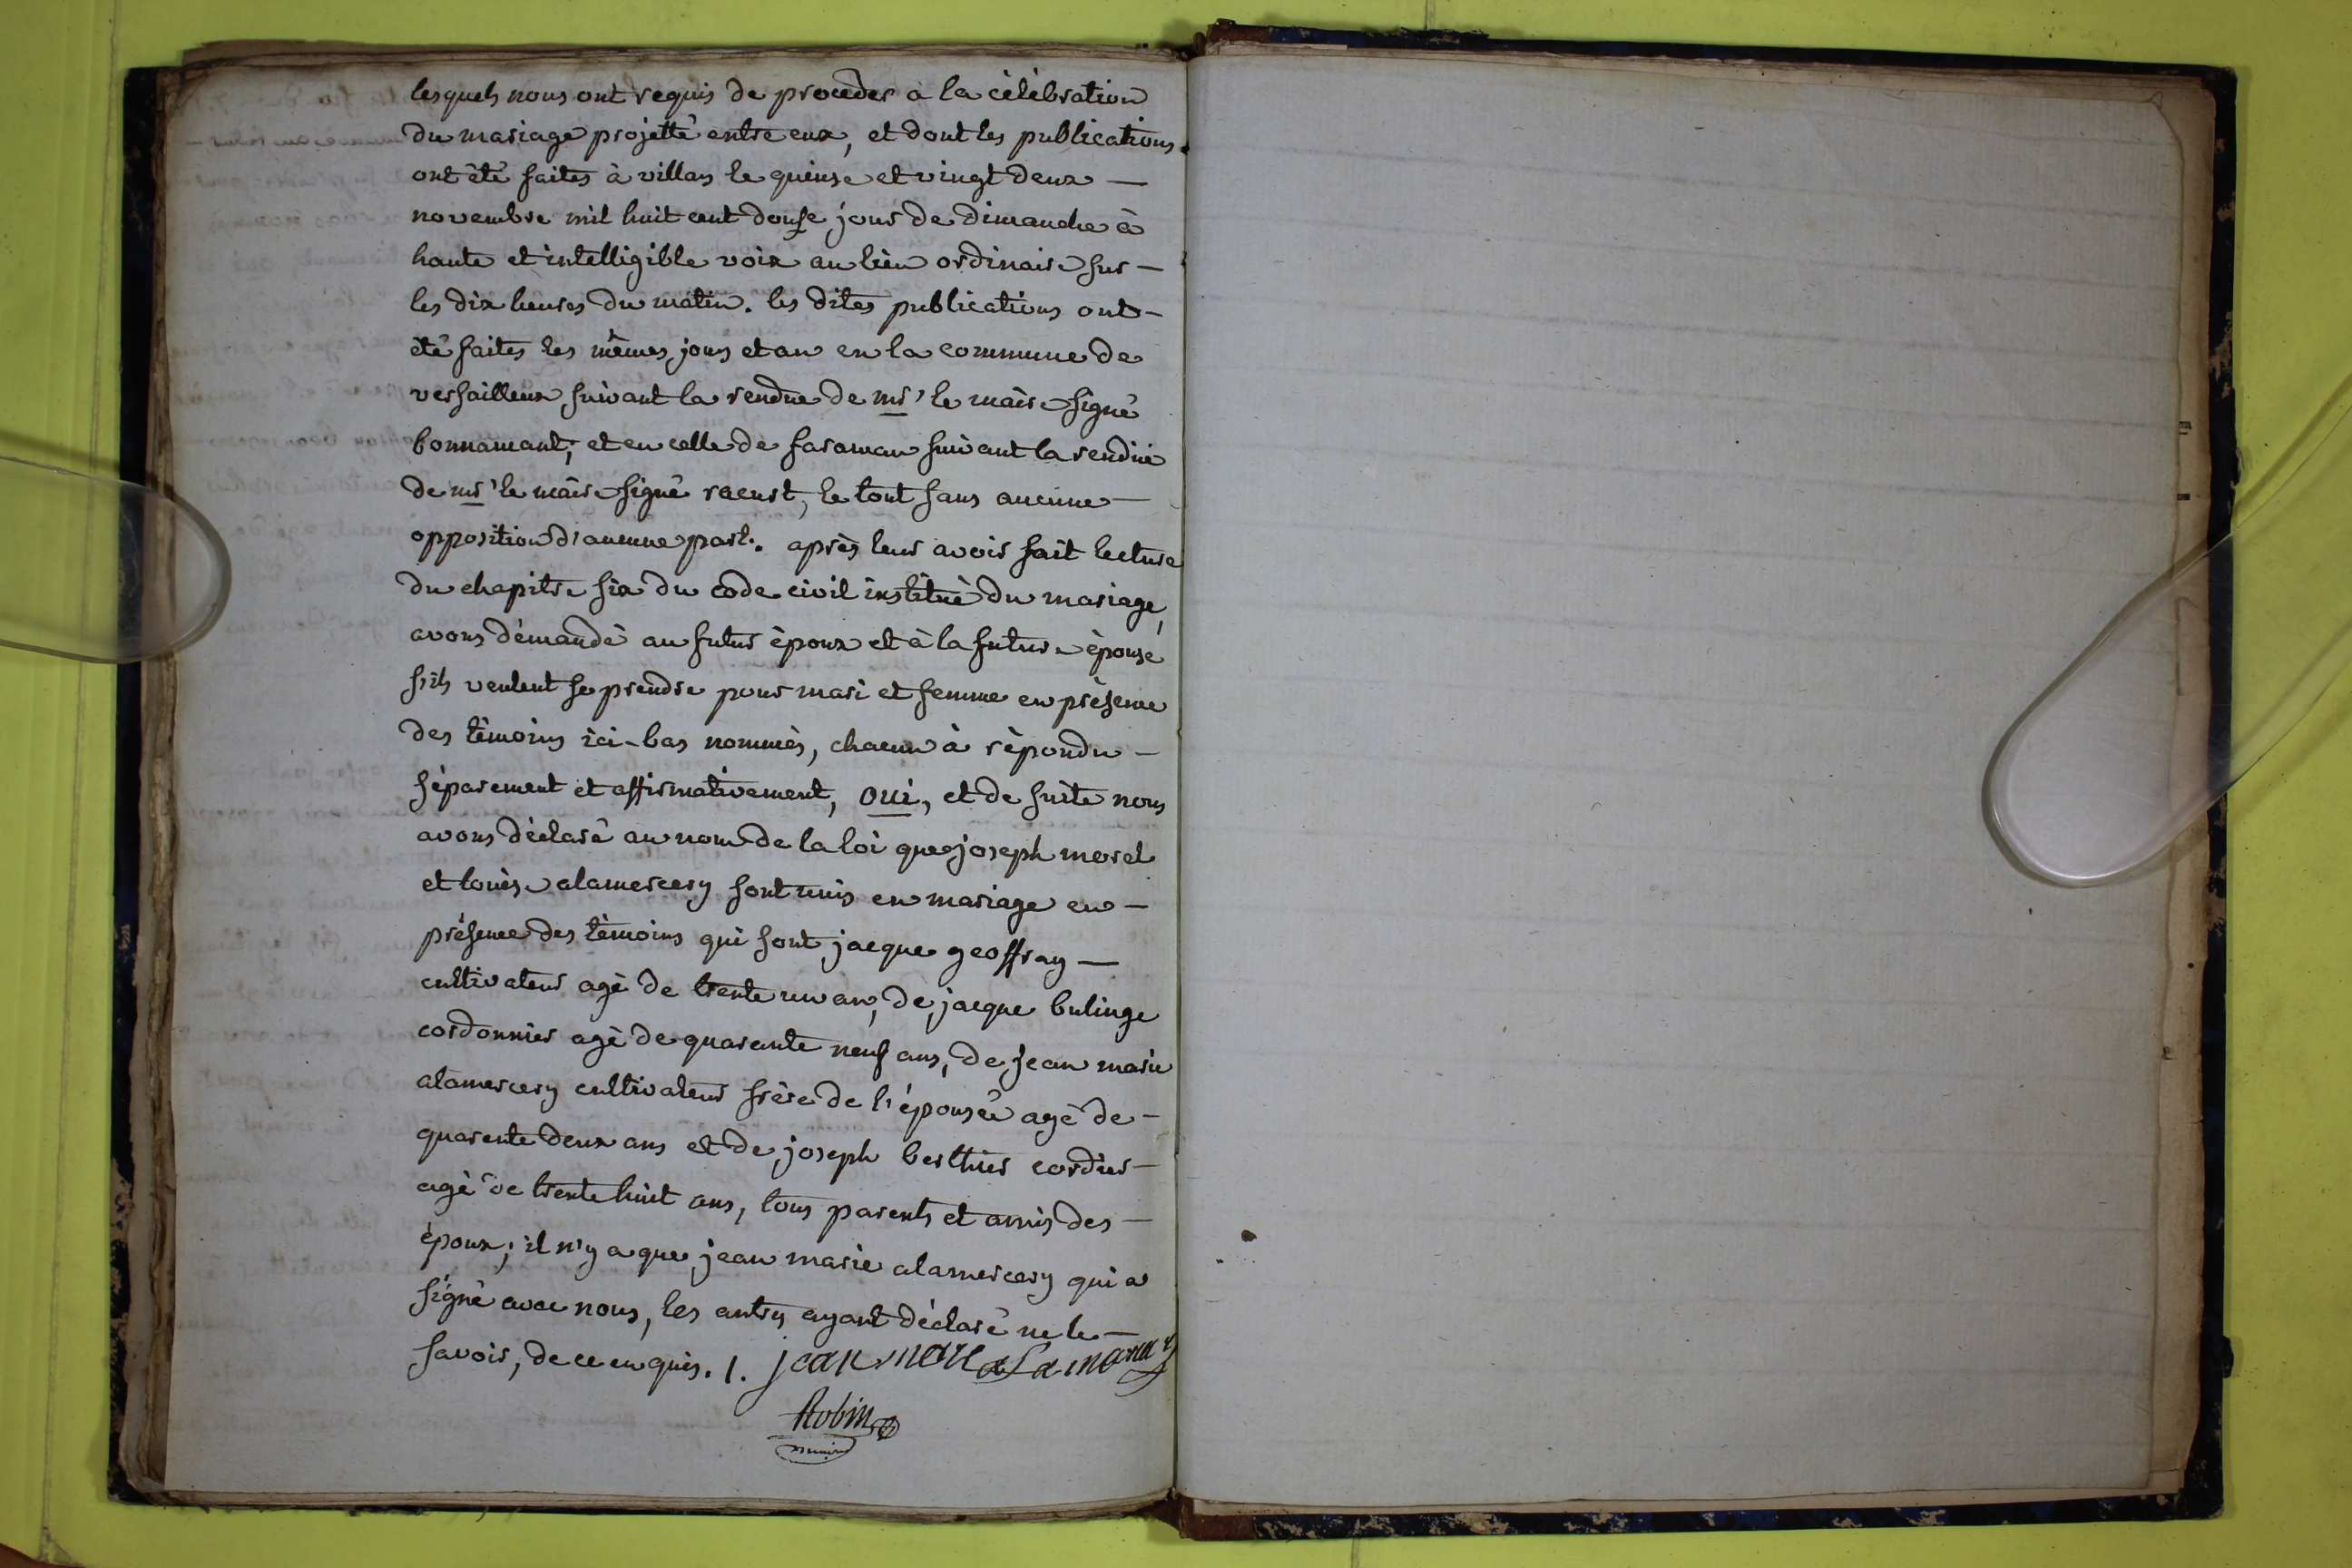 lesquels nous ont requis de procèder à la cèlèbration
du mariage projetté entre eux, et dont les publications
ont été faites à villars le quinse et vingt deux —
novembre mil huit cent douse jour de Dimanche à
haute et intelligible voix au lieu ordinaire sur —
les dix heures du matin. les dites publications ont —
été faites les mêmes jours et an en la commune de
versailleux suivant la rendue de mr' le maire signé
bonnamant; et en celle de faraman suivant la rendue
de mr' le maire signé , le tout sans aucune —
opposition d'aucune part. après leur avoir fait lecture
du chapitre six du code civil institué du mariage,
avons démandé au futur époux et à la future épouse
s'ils veulent se prendre pour mari et femme en présence
des témoins ici-bas nommés, chacun à répondu —
séparement et affirmativement, oui, et de suite nous
avons déclaré au nom de la loi que joseph morel
et louise alamercery sont unis en mariage en —
présence des témoins qui sont jacque geoffray —
cultivateur agé de trente un an, de jacque bulinge
cordonnier agé de quarante neuf ans, de jean marie
alamercery cultivateur frère de l'épousée agé de —
quarente deux ans et de joseph berthier cordier —
agé de trente huit ans, tous parents et amis des —
époux; il n'y a que jean marie alamercery qui a
signé avec nous, les autres ayant déclaré ne le —
savoir, de ce enquis. /. jean marie
Robin
maire